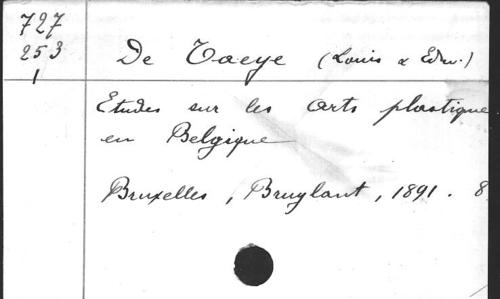 727
253
1
De Taeye (Louis & Edm.)
Etudes sur les arts plastique
en Belgique
Bruxelles, Bruylant, 1891. 8